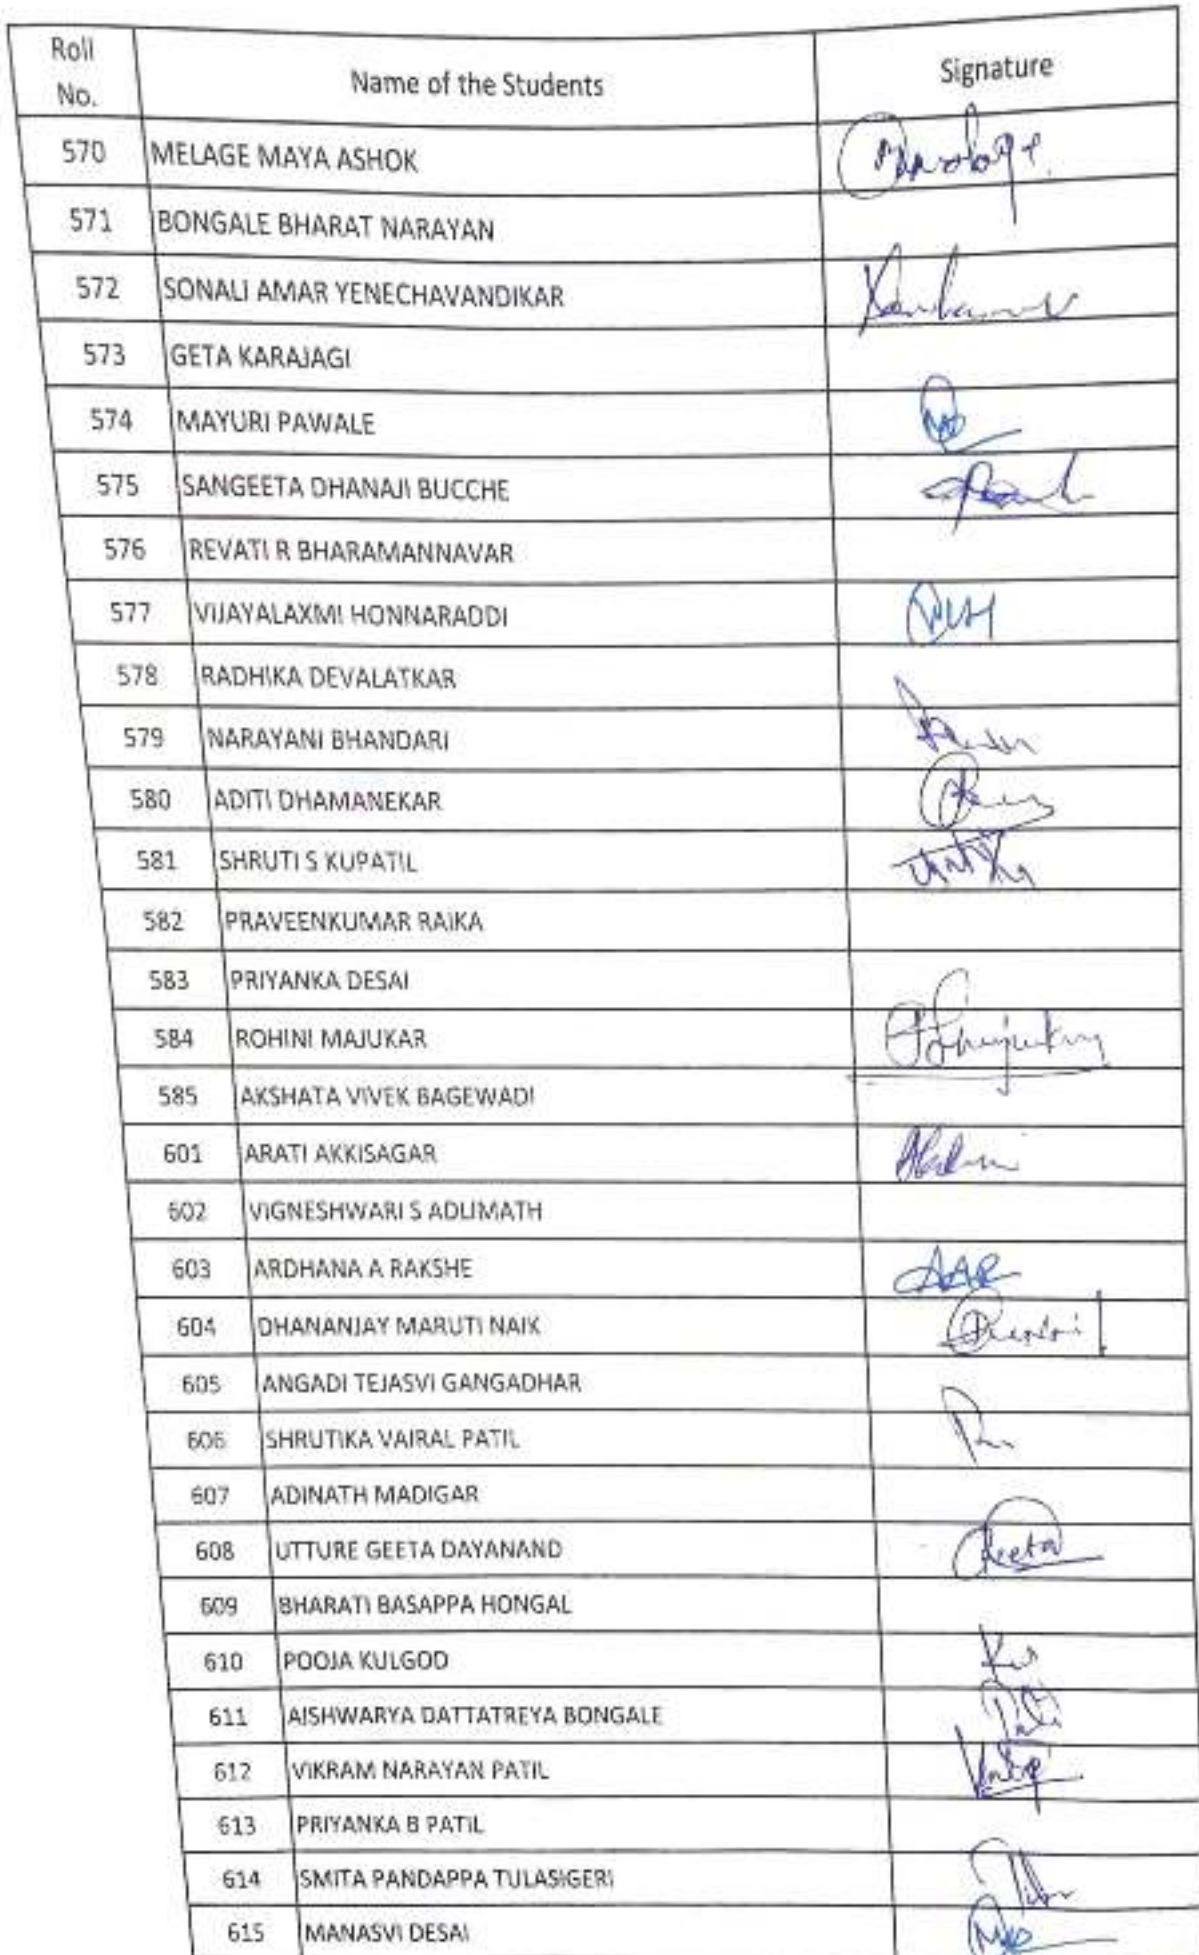 Roll No. Name of the Students Signature
570 MELAGE MAYA ASHOK
571 BONGALE BHARAT NARAYAN
572 SONALI AMAR YENECHAVANDIKAR
573 GETA KARAJAGI
574 MAYURI PAWALE
575 SANGEETA DHANAJI BUCCHE
576 REVATI R BHARAMANNAVAR
577 VIJAYALAXMI HONNARADDI
578 RADHIKA DEVALATKAR
579 NARAYANI BHANDARI
580 ADITI DHAMANEKAR
581 SHRUTI S KUPATIL
582 PRAVEENKUMAR RAIKA
583 PRIYANKA DESAI
584 ROHINI MAJUKAR
585 AKSHATA VIVEK BAGEWADI
601 ARATI AKKISAGAR
602 VIGNESHWARI S ADLIMATH
603 ARDHANA A RAKSHE AAR
604 DHANANJAY MARUTI NAIK
605 ANGADI TEJASVI GANGADHAR
606 SHRUTIKA VAIRAL PATIL
607 ADINATH MADIGAR
608 UTTURE GEETA DAYANAND Geeta
609 BHARATI BASAPPA HONGAL
610 POOJA KULGOD
611 AISHWARYA DATTATREYA BONGALE
612 VIKRAM NARAYAN PATIL
613 PRIYANKA B PATIL
614 SMITA PANDAPPA TULASIGERI
615 MANASVI DESAI